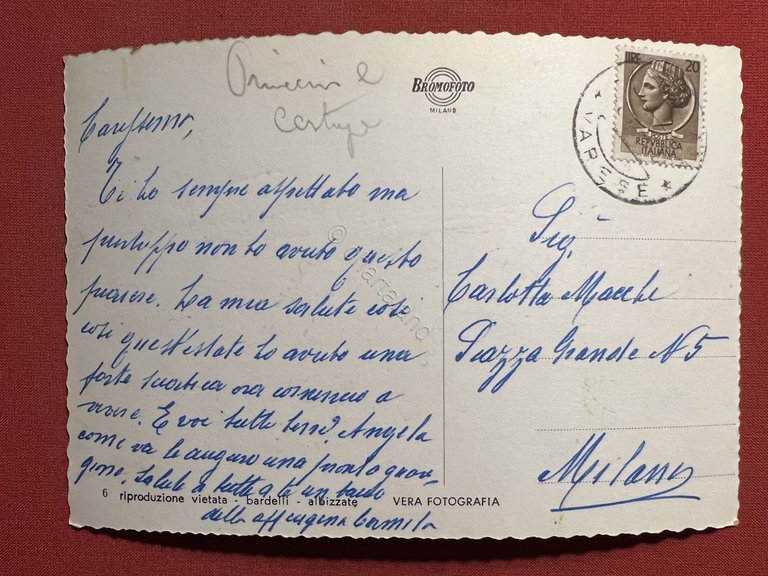 BROMOFOTO
MILANO
LIRE 20
REPVBBLICA
ITALIANA
VARESE
Carissima,
Ti ho sempre aspettato ma
purtroppo non ho avuto questo
piacere. La mia salute così
così quest'estate ho avuto una
forte sciatica ora comincio a
vivere. E voi tutte bene? Angela
come va le auguro una pronta guari-
gione. Saluti a tutte a te un bacio
dalla aff cugina Carmela
Sig.
Carlotta Macchi
Piazza Grande N 5
Milano
6 riproduzione vietata - bardelli - albizzate VERA FOTOGRAFIA